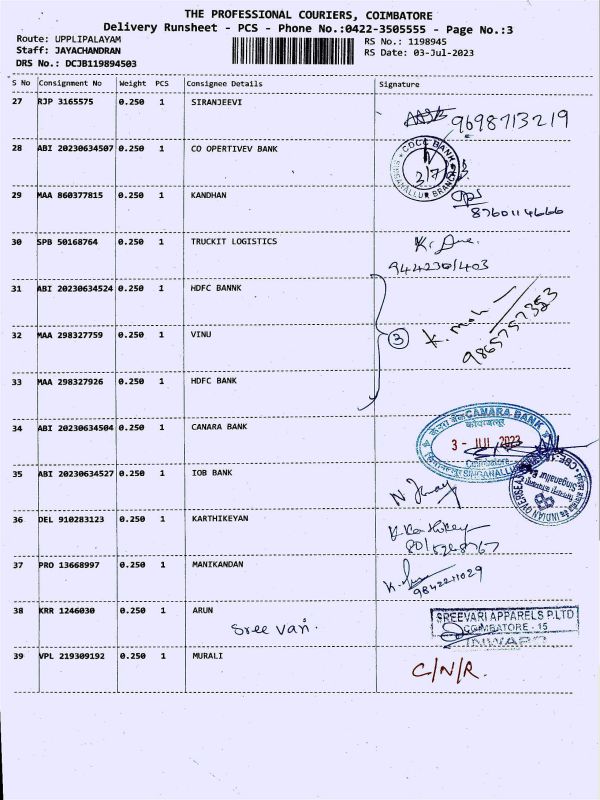 THE PROFESSIONAL COURIERS, COIMBATORE
Delivery Runsheet - PCS - Phone No.:0422-3505555 - Page No.:3
Route: UPPLIPALAYAM
Staff: JAYACHANDRAN
DRS No.: DCJB119894503
RS No.: 1198945
RS Date: 03-Jul-2023
S No Consignment No Weight PCS Consignee Details Signature
27 RJP 3165575 0.250 1 SIRANJEEVI
9698713219
28 ABI 20230634507 0.250 1 CO OPERTIVEV BANK
CDCC BANK
3/7/23
SINGANALLUR BRANCH
29 MAA 860377815 0.250 1 KANDHAN
8760114666
30 SPB 50168764 0.250 1 TRUCKIT LOGISTICS
9442361403
31 ABI 20230634524 0.250 1 HDFC BANNK
32 MAA 298327759 0.250 1 VINU
3
9865757323
33 MAA 298327926 0.250 1 HDFC BANK
34 ABI 20230634504 0.250 1 CANARA BANK
CANARA BANK
3 - JUL 2023
Coimbatore
35 ABI 20230634527 0.250 1 IOB BANK
INDIAN OVERSEAS
Singanallur
36 DEL 910283123 0.250 1 KARTHIKEYAN
37 PRO 13668997 0.250 1 MANIKANDAN
9842211029
38 KRR 1246030 0.250 1 ARUN
Sree vari.
SREEVARI APPARELS P.LTD
COIMBATORE - 15
INWARD
39 VPL 219309192 0.250 1 MURALI
C/N/R.